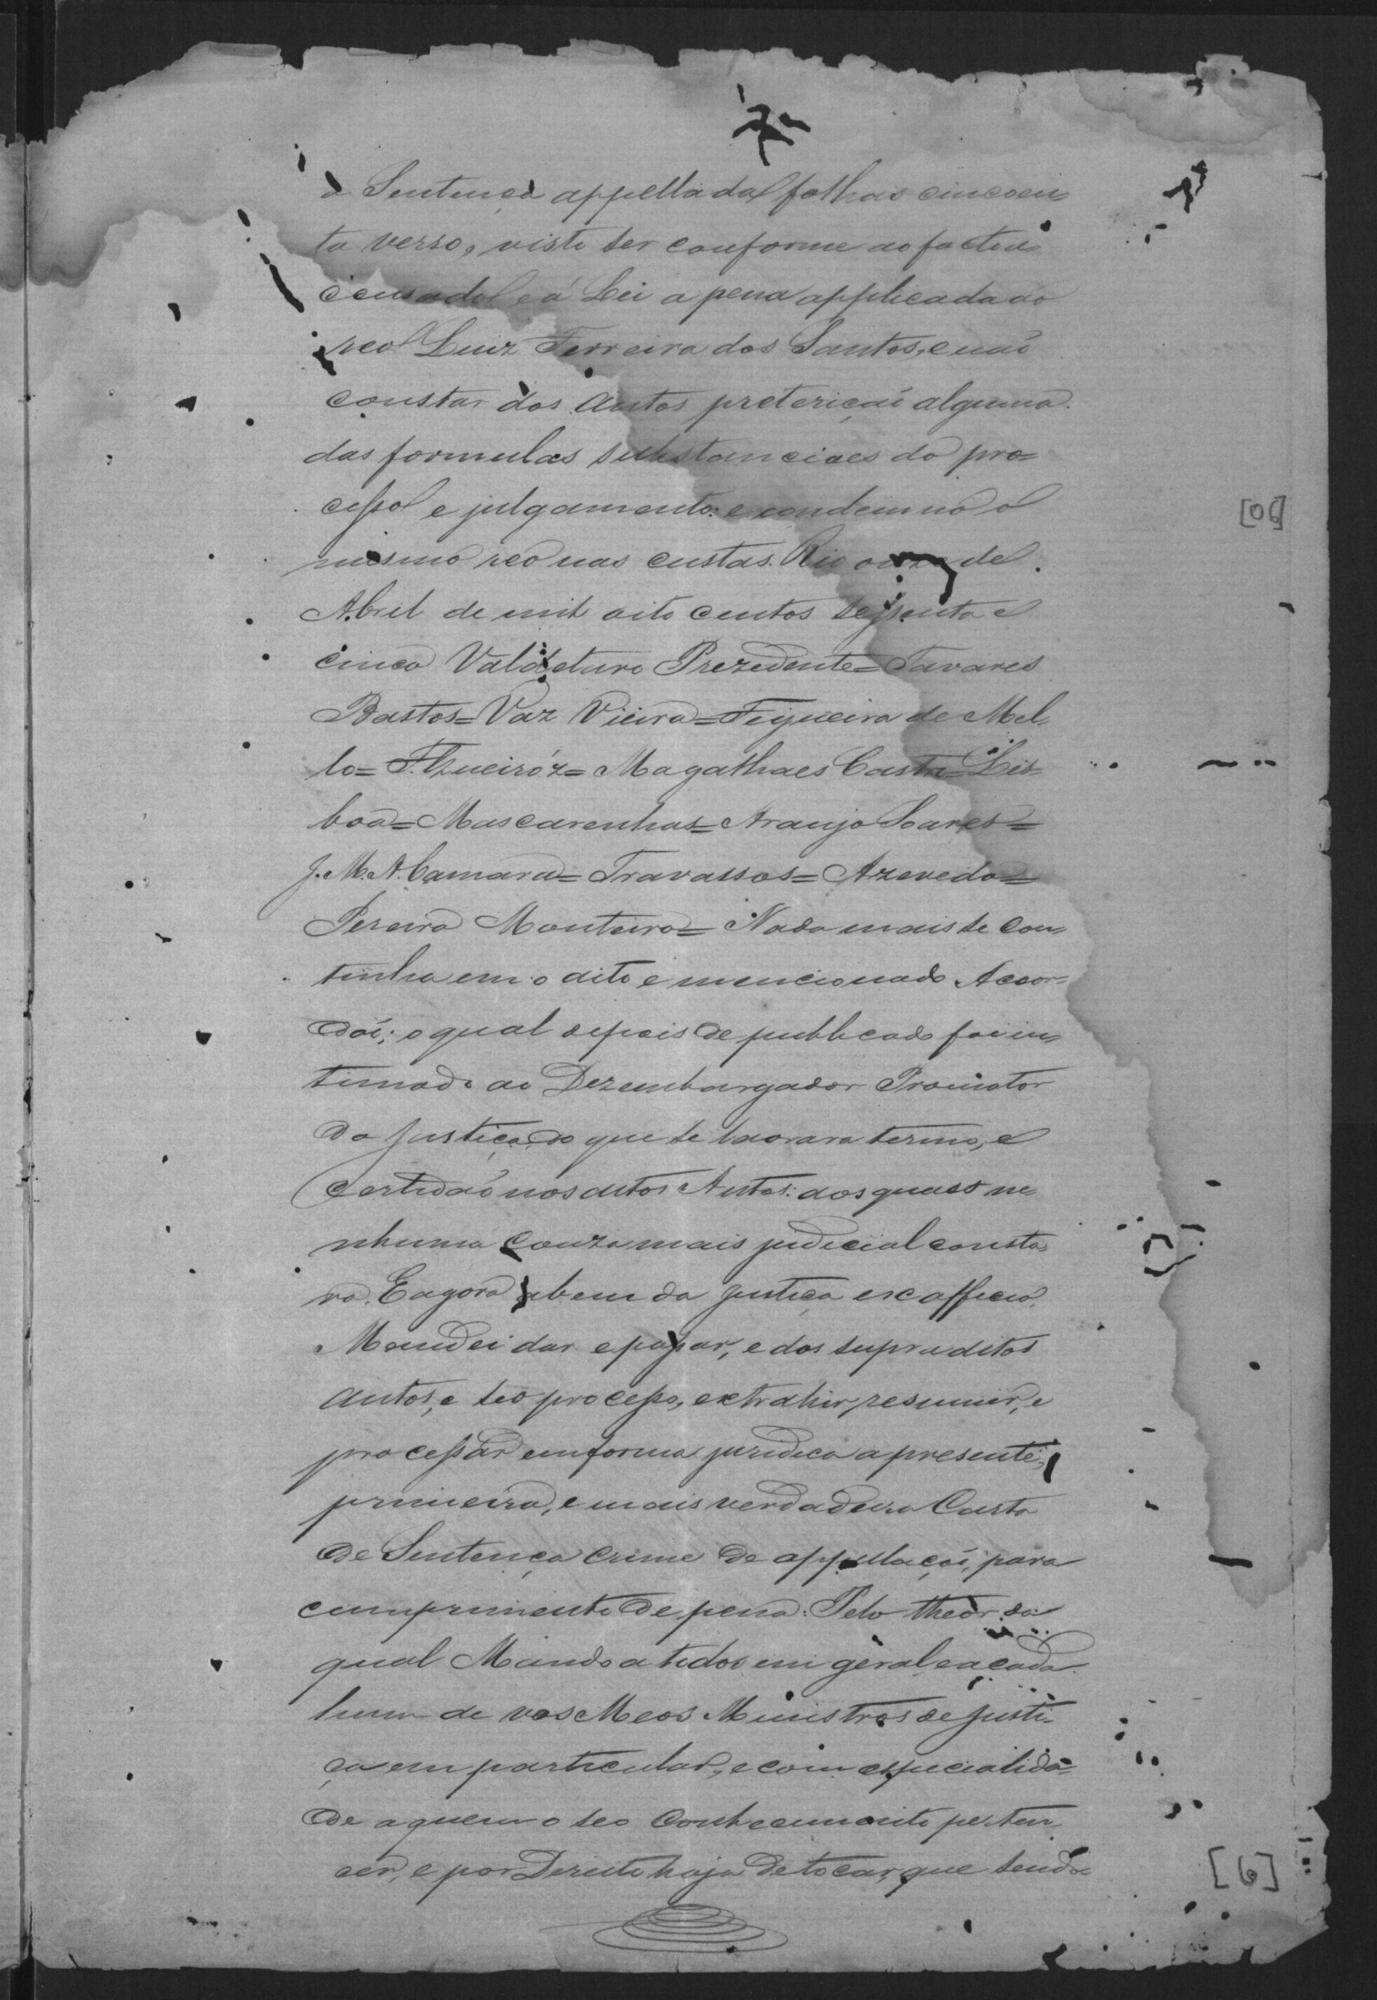 a Sentença appellada folhas cincoen
ta verso, visto ser conforme ao facto
e á Lei a pena applicada ao
reo Luiz Ferreira dos Santos, e naõ
constar dos Autos preteriçaõ alguma
das formulas substanciaes do pro=
cesso e julgamento: e condemnaõ o
mesmo reo nas custas. Rio onze de
Abril de mil oito centos sessenta e
cinco Valdetaro Prezidente= Tavares
Bastos= Vaz Vieira= Figueira de Mel
lo= F. Queiróz= Magalhaes Castro= Lis
boa= Mascarenhas= Araujo Soares=
J. M. A. Camara= Travassos= Azevedo=
Pereira Monteiro= Nada mais se con
tinha em o dito e mencionado Accor=
daõ; o qual depois de publicado foi in
timado ao Dezembargador Promotor
da Justiça, do que se lavrara termo, e
Certidaõ nos ditos Autos: dos quaes ne
nhuma couza mais judicial consta
va. E agora a bem da Justiça ex officio,
Mandei dar e passar, e dos supraditos
autos, e seo processo, extrahir, resumir, e
processar em forma juridica a presente,
primeira, e mais verdadeira Carta
de Sentença crime de appellaçaõ, para
cumprimento de pena: Pelo theor da
qual Mando a todos em geral, e a cada
hum de vos Meos Ministros de Justi
ça em particular, e com especialida=
de a quem o seo conhecimento perten
cer, e por Direito haja de tocar, que sendo
[06]
[6]